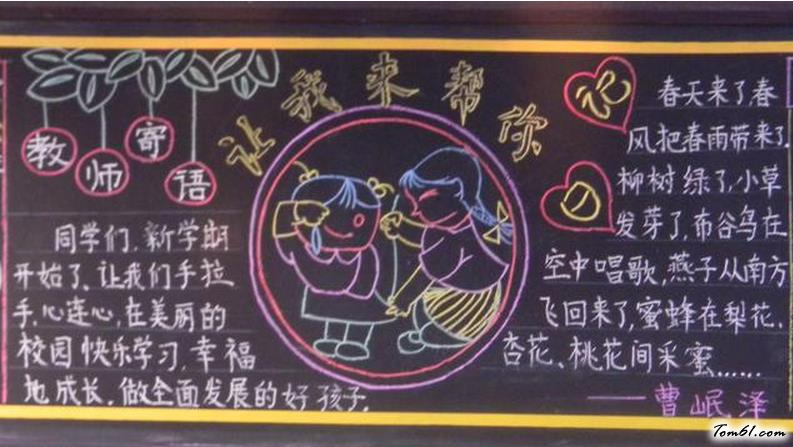 让我来帮你
教师寄语
同学们，新学期
开始了，让我们手拉
手，心连心，在美丽的
校园快乐学习，幸福
地成长，做全面发展的好孩子。
日记
春天来了，春
风把春雨带来了。
柳树绿了，小草
发芽了，布谷鸟在
空中唱歌，燕子从南方
飞回来了，蜜蜂在梨花、
杏花、桃花间采蜜……
——曹岷泽
Tom61.com